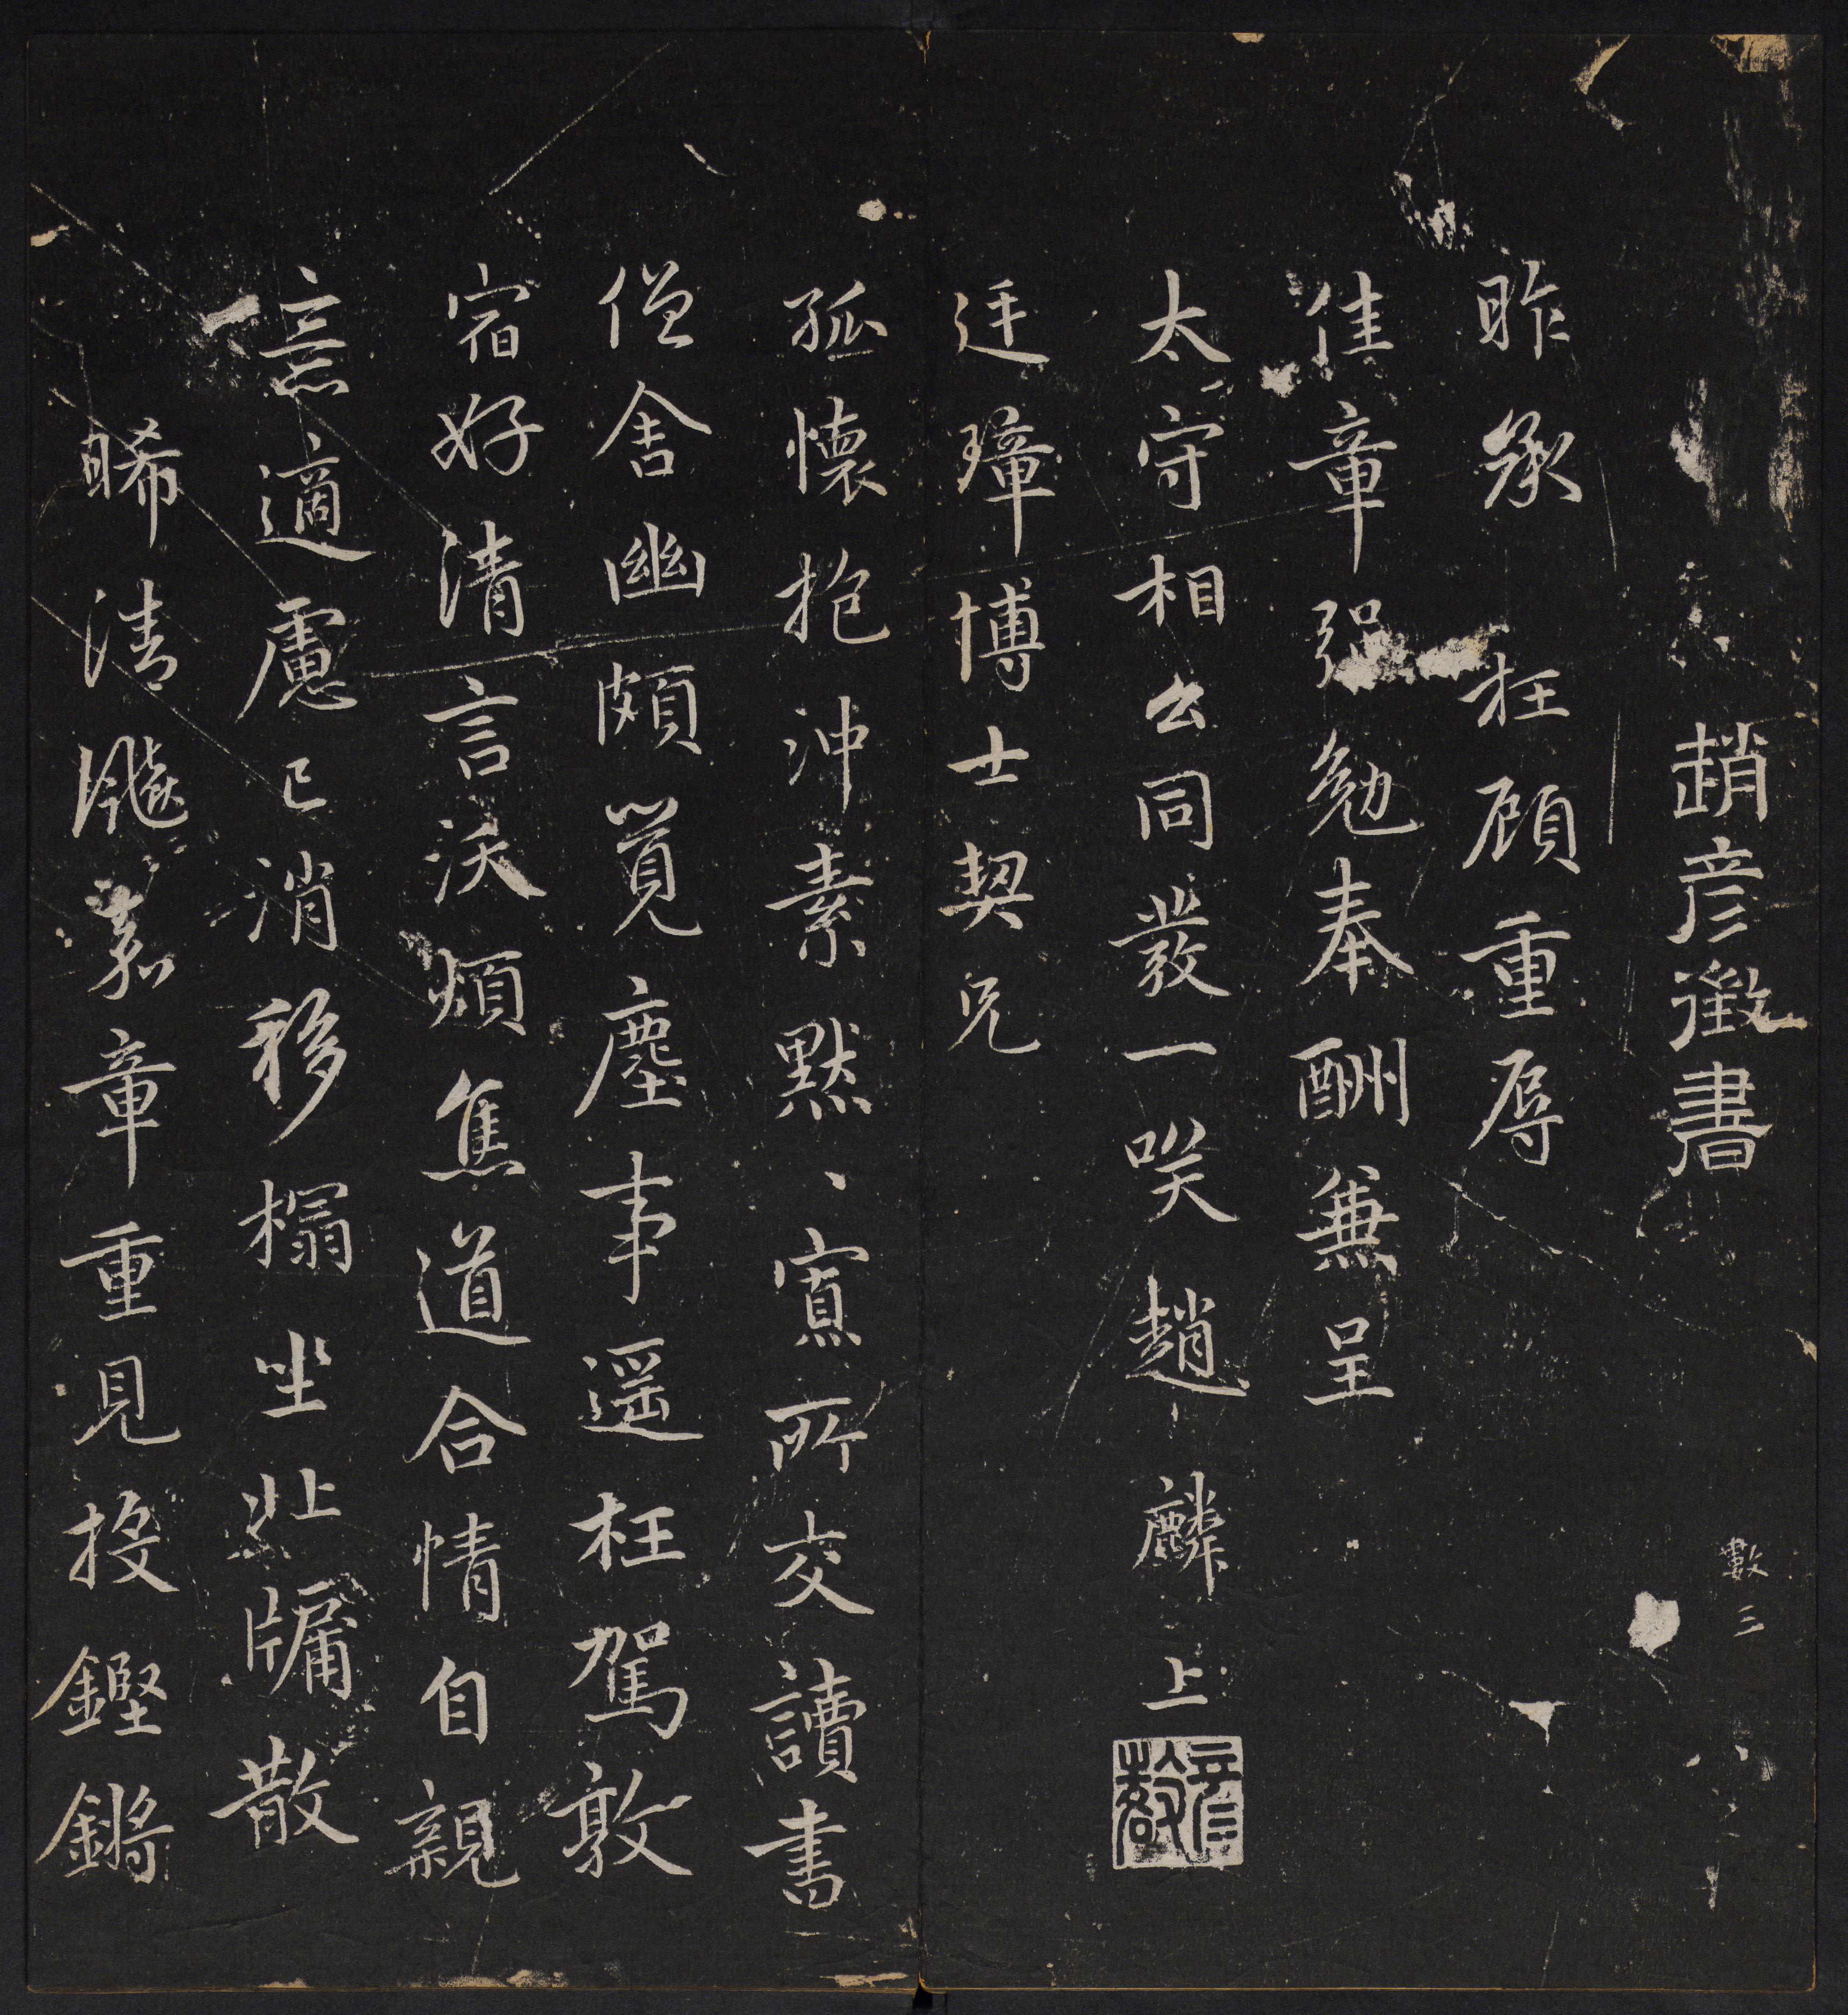 趙彥徵書
數三
昨承枉顧重辱
佳章强勉奉酬兼呈
太守相公同發一咲趙麟上
廷璋博士契兄
孤懷抱沖素默、寡所交讀書
僧舍幽頗覺塵事遥枉駕敦
宿好清言沃煩焦道合情自親
意適慮已消移榻坐北牖散
晞清飈嘉章重見投鏗鏘